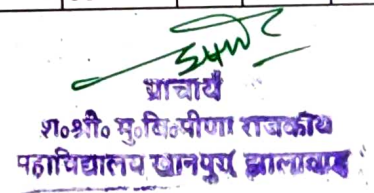 प्राचार्य
श॰श्री॰ मु॰वि॰मीणा राजकीय
महाविद्यालय खानपुर झालावाड